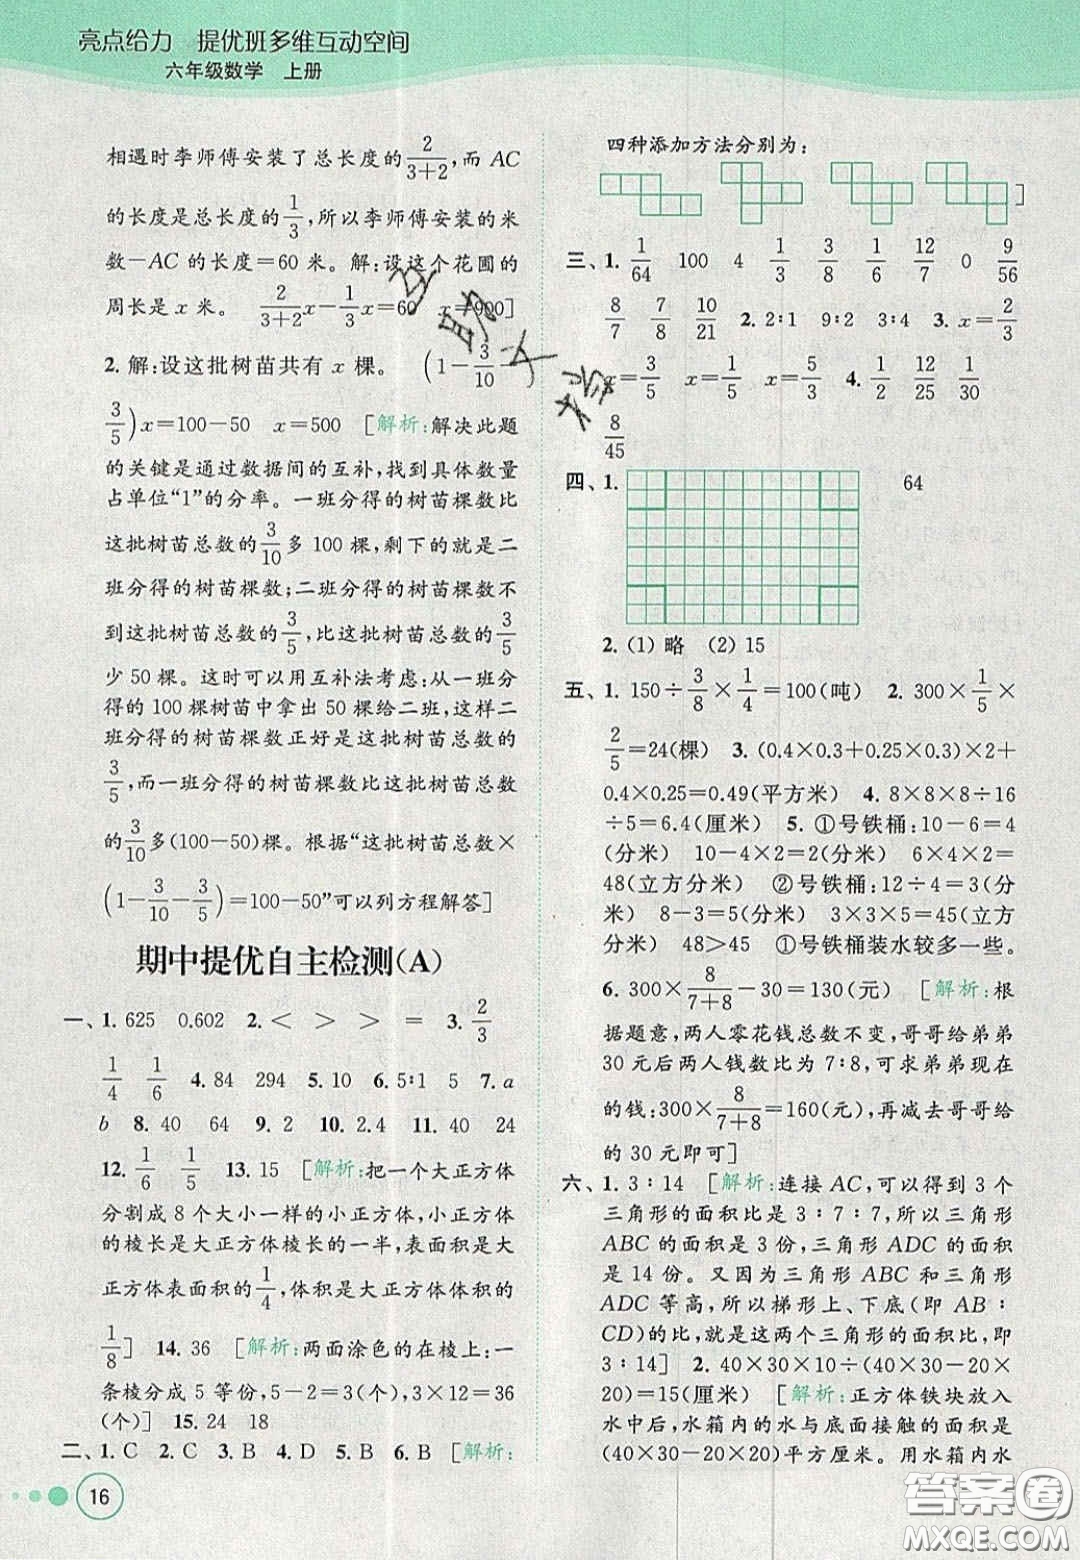 亮点给力　提优班多维互动空间
六年级数学　上册
相遇时李师傅安装了总长度的2/(3+2),而 AC
的长度是总长度的1/3,所以李师傅安装的米
数−AC 的长度=60 米。解:设这个花圃的
周长是 x 米。　2/(3+2)x−1/3x=60　x=900]
2. 解:设这批树苗共有 x 棵。　(1−3/10−
3/5)x=100−50　x=500　[解析:解决此题
的关键是通过数据间的互补,找到具体数量
占单位“1”的分率。一班分得的树苗棵数比
这批树苗总数的3/10多 100 棵,剩下的就是二
班分得的树苗棵数;二班分得的树苗棵数不
到这批树苗总数的3/5,比这批树苗总数的3/5
少 50 棵。这时可以用互补法考虑:从一班分
得的 100 棵树苗中拿出 50 棵给二班,这样二
班分得的树苗棵数正好是这批树苗总数的
3/5,而一班分得的树苗棵数比这批树苗总数
的3/10多(100−50)棵。根据“这批树苗总数×
(1−3/10−3/5)=100−50”可以列方程解答]
期中提优自主检测(A)
一、1. 625　0.602　2. <　>　>　=　3. 2/3
1/4　1/6　4. 84　294　5. 10　6. 5∶1　5　7. a
b　8. 40　64　9. 2　10. 2.4　11. 40　24
12. 1/6　1/5　13. 15　[解析:把一个大正方体
分割成 8 个大小一样的小正方体,小正方体
的棱长是大正方体棱长的一半,表面积是大
正方体表面积的1/4,体积是大正方体体积的
1/8]　14. 36　[解析:两面涂色的在棱上:一
条棱分成 5 等份,5−2=3(个),3×12=36
(个)]　15. 24　18
二、1. C　2. C　3. B　4. D　5. B　6. B　[解析:
16
四种添加方法分别为:
]
三、1. 1/64　100　4　1/3　3/8　1/6　12/7　0　9/56
8/7　7/8　10/21　2. 2∶1　9∶2　3∶4　3. x=2/3
x=3/5　x=1/5　x=3/5　4. 1/2　12/25　1/30
8/45
四、1.　64
2. (1) 略　(2) 15
五、1. 150÷3/8×1/4=100(吨)　2. 300×1/5×
2/5=24(棵)　3. (0.4×0.3+0.25×0.3)×2+
0.4×0.25=0.49(平方米)　4. 8×8×8÷16
÷5=6.4(厘米)　5. ①号铁桶:10−6=4
(分米)　10−4×2=2(分米)　6×4×2=
48(立方分米)　②号铁桶:12÷4=3(分
米)　8−3=5(分米)　3×3×5=45(立方
分米)　48>45　①号铁桶装水较多一些。
6. 300×8/(7+8)−30=130(元)　[解析:根
据题意,两人零花钱总数不变,哥哥给弟弟
30 元后两人钱数比为 7∶8,可求弟弟现在
的钱:300×8/(7+8)=160(元),再减去哥哥给
的 30 元即可]
六、1. 3∶14　[解析:连接 AC,可以得到 3 个
三角形的面积比是 3∶7∶7,所以三角形
ABC 的面积是 3 份,三角形 ADC 的面积
是 14 份。又因为三角形 ABC 和三角形
ADC 等高,所以梯形上、下底(即 AB∶
CD)的比,就是这两个三角形的面积比,即
3∶14]　2. 40×30×10÷(40×30−20×
20)=15(厘米)　[解析:正方体铁块放入
水中后,水箱内的水与底面接触的面积是
(40×30−20×20)平方厘米。用水箱内水
互助文档
答案圈
MXQE.COM